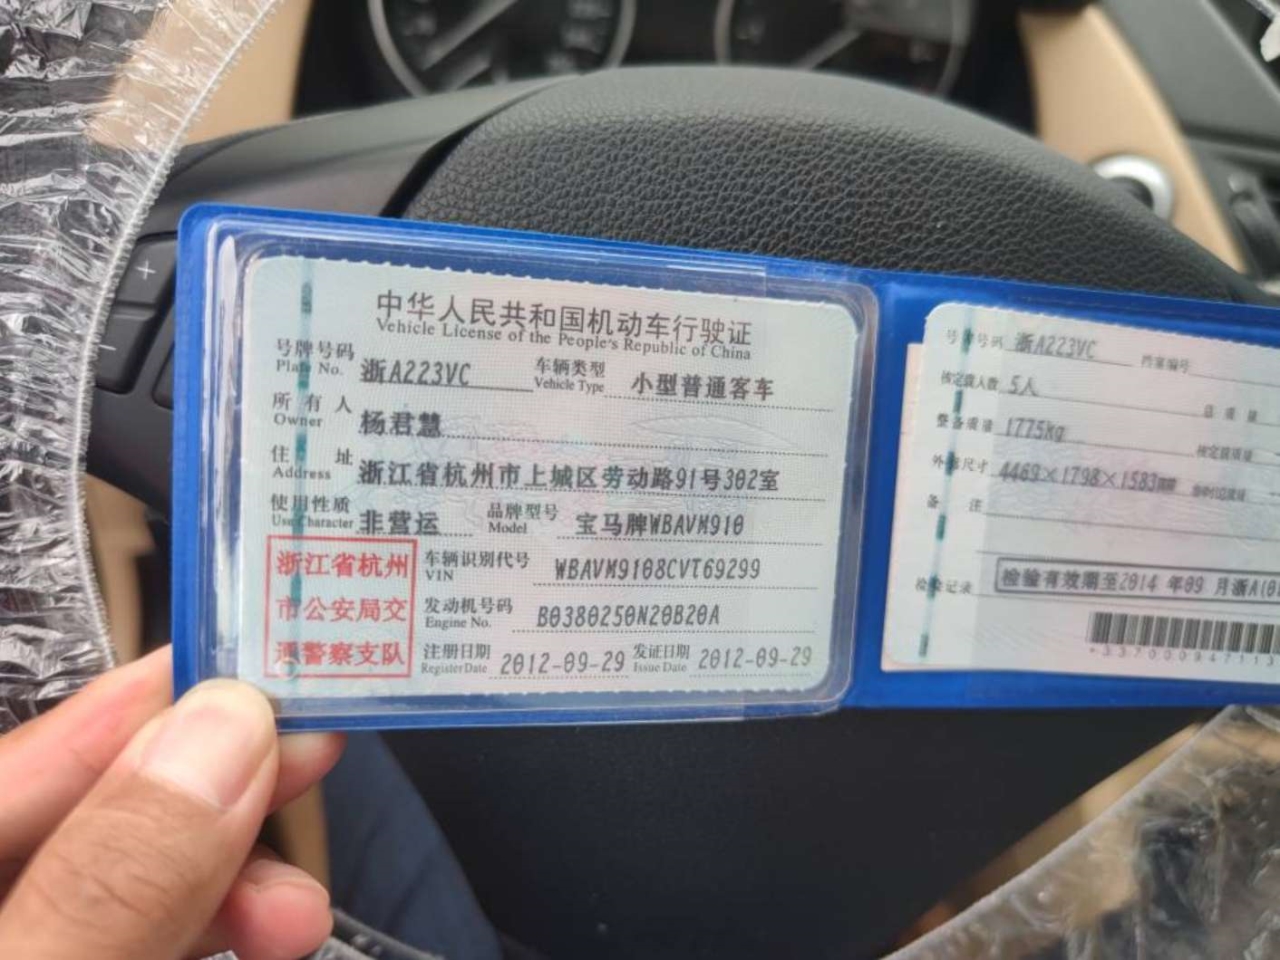 中华人民共和国机动车行驶证
Vehicle License of the People's Republic of China
号牌号码 浙A223VC 车辆类型 小型普通客车
Plate No. Vehicle Type
所有人 杨君慧
Owner
住址 浙江省杭州市上城区劳动路91号302室
Address
使用性质 非营运 品牌型号 宝马牌WBAVM910
Use Character Model
浙江省杭州
市公安局交
通警察支队
车辆识别代号 WBAVM9108CVT69299
VIN
发动机号码 B0380250N20B20A
Engine No.
注册日期 2012-09-29 发证日期 2012-09-29
Register Date Issue Date
号牌号码 浙A223VC 档案编号
核定载人数 5人
整备质量 1775kg 核定载质量
外廓尺寸 4469×1798×1583
备注
检验记录 检验有效期至2014 年09 月浙A(0
*337000947113